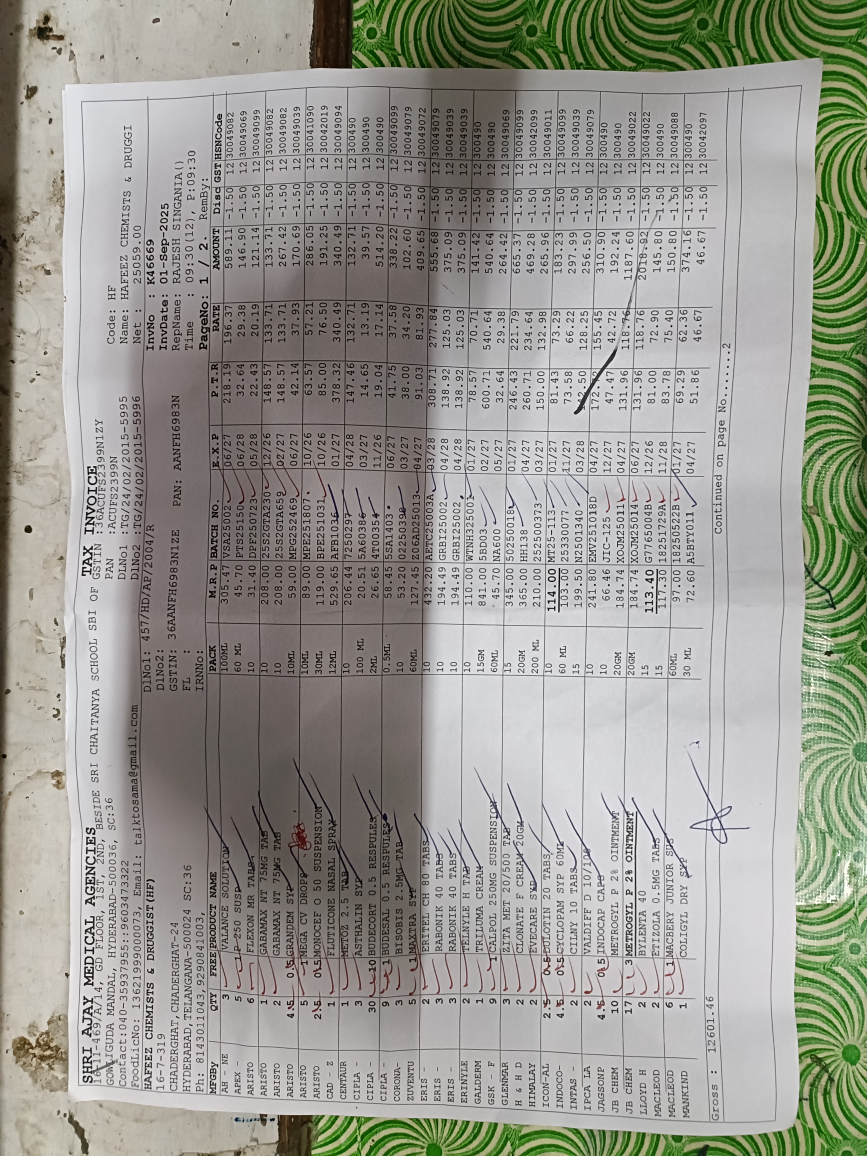 SHRI AJAY MEDICAL AGENCIES TAX INVOICE Code: HF
GD FLOOR, 1ST, 2ND, BESIDE SRI CHAITANYA SCHOOL SBI OF GSTIN :36ACUFS2399N1ZY Name: HAFEEZ CHEMISTS & DRUGGI
GOWLIGUDA MANDAL, HYDERABAD-500036, SC:36 PAN :ACUFS2399N Net : 25059.00
Contact:040-35937955:9603473322 DlNo1 :TG/24/02/2015-5995
FoodLicNo: 13621999000073, Email: talktosama@gmail.com DlNo2 :TG/24/02/2015-5996
HAFEEZ CHEMISTS & DRUGGIST(HF) DlNo1: 457/HD/AP/2004/R InvNo : K46669
16-7-319 DlNo2: InvDate: 01-Sep-2025
CHADERGHAT,CHADERGHAT-24 GSTIN: 36AANFH6983N1ZE PAN: AANFH6983N RepName: RAJESH SINGANIA()
HYDERABAD,TELANGANA-500024 SC:36 FL : Time : 09:30(12), P:09:30
Ph: 8143011043,9290841003, IRNNo: PageNo: 1 / 2. RemBy:
MFGBy QTY FREE PRODUCT NAME PACK M.R.P BATCH NO. E.X.P P.T.R RATE AMOUNT Disc GST HSNCode
AH - NE 3 VALANCE SOLUTION 100ML 305.47 VSA25002 06/27 218.19 196.37 589.11 -1.50 12 30049082
APEX - 5 250 SUSP 60 ML 45.70 PTS25150 06/28 32.64 29.38 146.90 -1.50 12 30049069
ARISTO 6 FLEXON MR TABS 10 31.40 DPF250723 05/28 22.43 20.19 121.14 -1.50 12 30049099
ARISTO 1 GABAMAX NT 75MG TAB 10 208.00 25S2GTA230 12/26 148.57 133.71 133.71 -1.50 12 30049082
ARISTO 2 GABAMAX NT 75MG TAB 10 208.00 25S2GTA659 02/27 148.57 133.71 267.42 -1.50 12 30049082
ARISTO 4.5 0.5 GRAMDEM SYP 10ML 59.00 MPG252469 06/27 42.14 37.93 170.69 -1.50 12 30049039
ARISTO 5 MEGA CV DROPS 10ML 89.00 MPE251807 10/26 63.57 57.21 286.05 -1.50 12 30041090
ARISTO 2.5 0.5 MONOCEF O 50 SUSPENSION 30ML 119.00 BPE251031 10/26 85.00 76.50 191.25 -1.50 12 30042019
CAD - Z 1 FLUTICONE NASAL SPRAY 12ML 529.65 AFB1036 01/27 378.32 340.49 340.49 -1.50 12 30049094
CENTAUR 1 METOZ 2.5 TAB 10 206.44 7250297 04/28 147.46 132.71 132.71 -1.50 12 300490
CIPLA - 3 ASTHALIN SYP 100 ML 20.51 5A60386 03/27 14.65 13.19 39.57 -1.50 12 300490
CIPLA - 30 10 BUDECORT 0.5 RESPULES 2ML 26.65 4T00354 11/26 19.04 17.14 514.20 -1.50 12 300490
CIPLA - 9 BUDESAL 0.5 RESPULES 0.5ML 58.45 5SA1403 06/27 41.75 37.58 338.22 -1.50 12 30049099
CORONA- 3 BISOBIS 2.5MG TAB 10 53.20 02250398 03/27 38.00 34.20 102.60 -1.50 12 30049079
ZUVENTU 5 MAXTRA SYP 60ML 127.45 Z06AD25013 04/27 91.03 81.93 409.65 -1.50 12 30049072
ERIS - 2 ERITEL CH 80 TABS 10 432.20 AETC25003A 03/28 308.71 277.84 555.68 -1.50 12 30049079
ERIS - 3 RABONIK 40 TABS 10 194.49 GRBI25002 04/28 138.92 125.03 375.09 -1.50 12 30049039
ERIS - 3 RABONIK 40 TABS 10 194.49 GRBI25002 04/28 138.92 125.03 375.09 -1.50 12 30049039
ERINYLE 2 TELNYLE H TAB 10 110.00 WTNH325001 01/27 78.57 70.71 141.42 -1.50 12 30049079
GALDERM 1 TRILUMA CREAM 15GM 841.00 5BD03 02/27 600.71 540.64 540.64 -1.50 12 300490
GSK - F 9 1 CALPOL 250MG SUSPENSION 60ML 45.70 NA600 05/27 32.64 29.38 264.42 -1.50 12 300490
GLENMAR 3 ZITA MET 20/500 TAB 15 345.00 50250018 01/27 246.43 221.79 665.37 -1.50 12 30049069
H & H D 2 CLONATE F CREAM 20GM 20GM 365.00 HH138 04/27 260.71 234.64 469.28 -1.50 12 30049099
HIMALAY 2 EVECARE SYP 200 ML 210.00 252500373 03/27 150.00 132.98 265.96 -1.50 12 30042099
ICON-AL 2.5 0.5 COLOTIN 20 TABS 10 114.00 MT25-113 01/27 81.43 73.29 183.23 -1.50 12 30049011
INDOCO- 4.5 0.5 CYCLOPAM SYP 60ML 60 ML 103.00 25330077 11/27 73.58 66.22 297.99 -1.50 12 30049099
INTAS - 2 CILNY 10 TABS 15 199.50 N2501340 03/28 142.50 128.25 256.50 -1.50 12 30049039
IPCA LA 2 VALDIFF D 10/100 10 241.80 EMV251018D 04/27 155.45 310.90 -1.50 12 30049079
JAGSONP 4.5 0.5 INDOCAP CAPS 10 66.46 JTC-125 12/27 47.47 42.72 192.24 -1.50 12 300490
JB CHEM 10 METROGYL P 2% OINTMENT 20GM 184.74 XOJM25011 04/27 131.96 118.76 1187.60 -1.50 12 30049022
JB CHEM 17 3 METROGYL P 2% OINTMENT 20GM 184.74 XOJM25014 06/27 131.96 118.76 2018.92 -1.50 12 30049022
LLOYD H 2 BYLENTA 40 15 113.40 G7765004B 12/26 81.00 72.90 145.80 -1.50 12 300490
MACLEOD 2 ETIZOLA 0.5MG TABS 15 117.30 18251729A 11/28 83.78 75.40 150.80 -1.50 12 30049088
MACLEOD 6 MACBERY JUNIOR SUS 60ML 97.00 18250522B 01/27 69.29 62.36 374.16 -1.50 12 300490
MANKIND 1 COLIGYL DRY SYP 30 ML 72.60 A5BTY011 04/27 51.86 46.67 46.67 -1.50 12 30042097
Gross : 12601.46 Continued on page No.......2